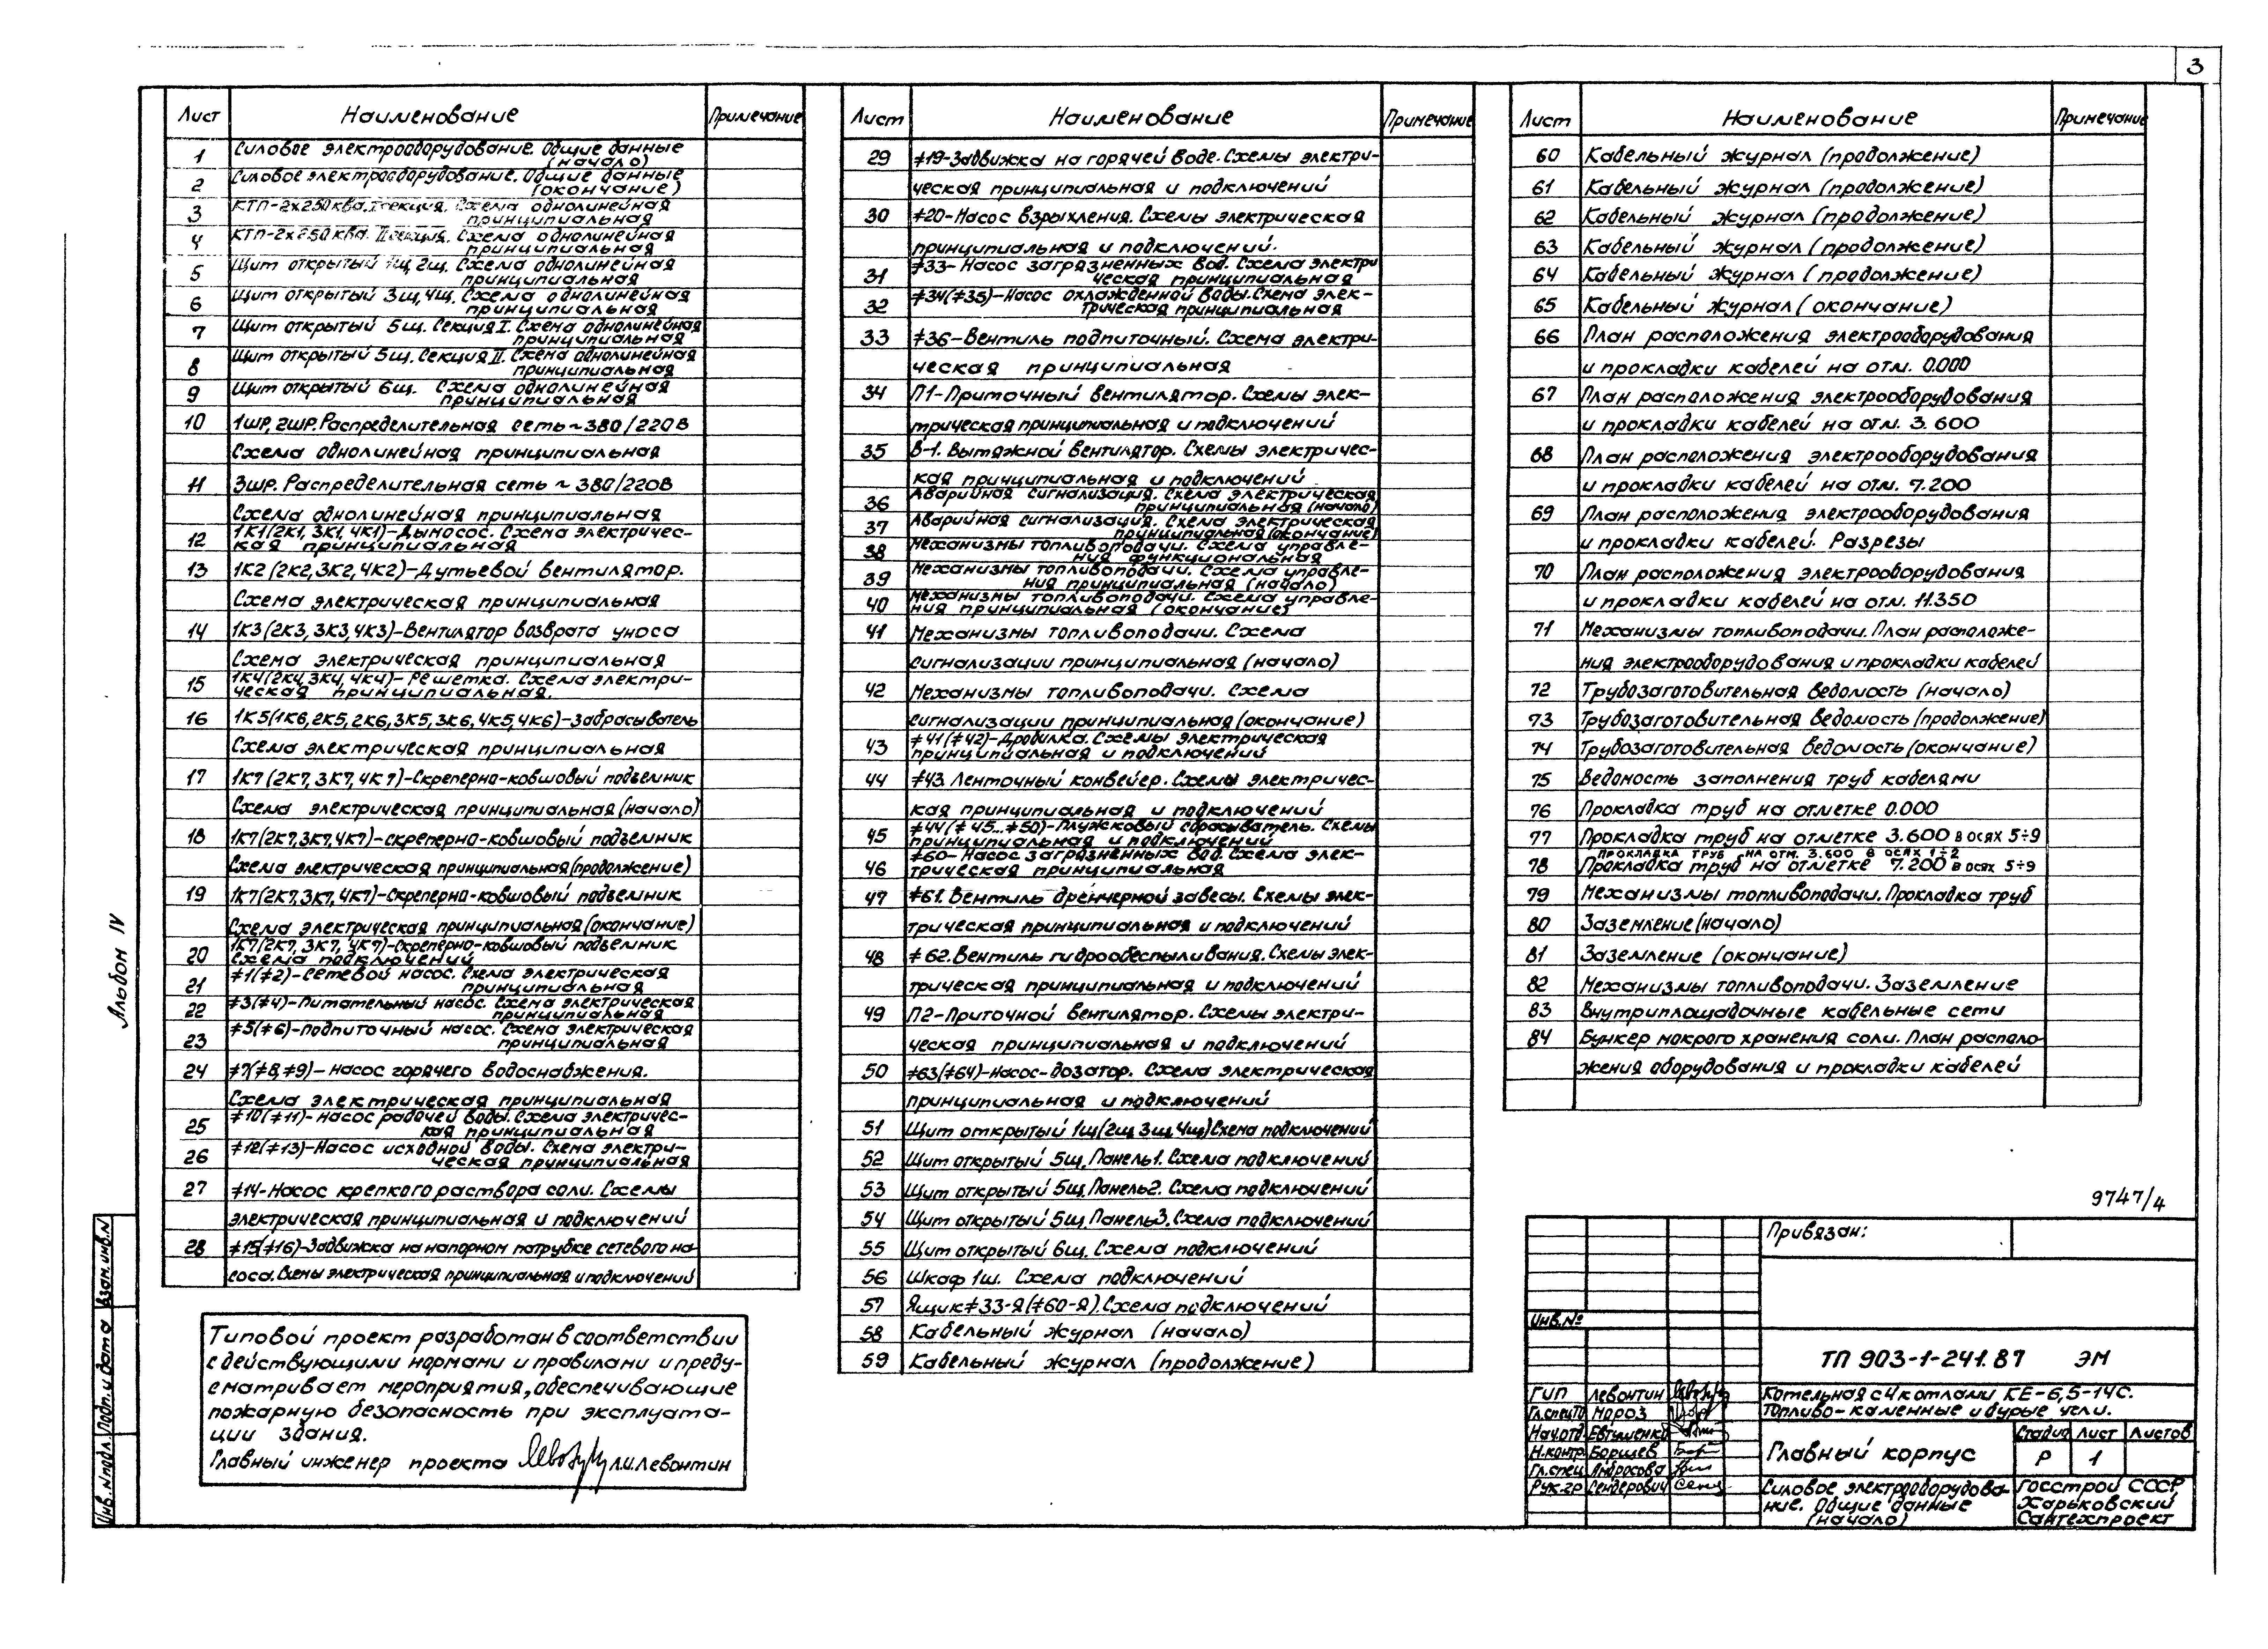 3
Лист Наименование Примечание
1 Силовое электрооборудование. Общие данные
(начало)
2 Силовое электрооборудование. Общие данные
(окончание)
3 КТП-2х250ква. I секция. Схема однолинейная
принципиальная
4 КТП-2х250ква. II секция. Схема однолинейная
принципиальная
5 Щит открытый 1щ, 2щ. Схема однолинейная
принципиальная
6 Щит открытый 3щ, 4щ. Схема однолинейная
принципиальная
7 Щит открытый 5щ. Секция I. Схема однолинейная
принципиальная
8 Щит открытый 5щ. Секция II. Схема однолинейная
принципиальная
9 Щит открытый 6щ. Схема однолинейная
принципиальная
10 1шр, 2шр. Распределительная сеть ~380/220в
Схема однолинейная принципиальная
11 3шр. Распределительная сеть ~ 380/220в
Схема однолинейная принципиальная
12 1К1(2К1, 3К1, 4К1)-Дымосос. Схема электричес-
кая принципиальная
13 1К2 (2К2, 3К2, 4К2)-Дутьевой вентилятор.
Схема электрическая принципиальная
14 1К3 (2К3, 3К3, 4К3)-Вентилятор возврата уноса
Схема электрическая принципиальная
15 1К4(2К4, 3К4, 4К4)-Решетка. Схема электри-
ческая принципиальная.
16 1К5(1К6, 2К5, 2К6, 3К5, 3К6, 4К5, 4К6)-Забрасыватель
Схема электрическая принципиальная
17 1К7 (2К7, 3К7, 4К7)-Скреперно-ковшовый подъемник
Схема электрическая принципиальная (начало)
18 1К7(2К7, 3К7, 4К7)-скреперно-ковшовый подъемник
Схема электрическая принципиальная (продолжение)
19 1К7(2К7, 3К7, 4К7)-Скреперно-ковшовый подъемник
Схема электрическая принципиальная (окончание)
20 1К7(2К7, 3К7, 4К7)-Скреперно-ковшовый подъемник
Схема подключений
21 #1(#2)-Сетевой насос. Схема электрическая
принципиальная
22 #3(#4)-Питательный насос. Схема электрическая
принципиальная
23 #5(#6)-Подпиточный насос. Схема электрическая
принципиальная
24 #7(#8, #9)-Насос горячего водоснабжения.
Схема электрическая принципиальная
25 #10(#11)-Насос рабочей воды. Схема электричес-
кая принципиальная
26 #12(#13)-Насос исходной воды. Схема электри-
ческая принципиальная
27 #14-Насос крепкого раствора соли. Схемы
электрическая принципиальная и подключений
28 #15(#16)-Задвижка на напорном патрубке сетевого на-
соса. Схемы электрическая принципиальная и подключений
Лист Наименование Примечание
29 #19-Задвижка на горячей воде. Схемы электри-
ческая принципиальная и подключений
30 #20-Насос взрыхления. Схемы электрическая
принципиальная и подключений.
31 #33-Насос загрязненных вод. Схема электри
ческая принципиальная
32 #34(#35)-Насос охлажденной воды. Схема элек-
трическая принципиальная
33 #36-Вентиль подпиточный. Схема электри-
ческая принципиальная
34 П1-Приточный вентилятор. Схемы элек-
трическая принципиальная и подключений
35 В-1. Вытяжной вентилятор. Схемы электричес-
кая принципиальная и подключений
36 Аварийная сигнализация. Схема электрическая
принципиальная (начало)
37 Аварийная сигнализация. Схема электрическая
принципиальная (окончание)
38 Механизмы топливоподачи. Схема управле-
ния функциональная
39 Механизмы топливоподачи. Схема управле-
ния принципиальная (начало)
40 Механизмы топливоподачи. Схема управле-
ния принципиальная (окончание)
41 Механизмы топливоподачи. Схема
сигнализации принципиальная (начало)
42 Механизмы топливоподачи. Схема
сигнализации принципиальная (окончание)
43 #41(#42)-Дробилка. Схемы электрическая
принципиальная и подключений
44 #43. Ленточный конвейер. Схемы электричес-
кая принципиальная и подключений
45 #44(#45...#50)-Плужковый сбрасыватель. Схемы
принципиальная и подключений
46 #60-Насос загрязненных вод. Схема элек-
трическая принципиальная
47 #61. Вентиль дренчерной завесы. Схемы элек-
трическая принципиальная и подключений
48 #62. Вентиль гидрообеспыливания. Схемы элек-
трическая принципиальная и подключений
49 П2-Приточной вентилятор. Схемы электри-
ческая принципиальная и подключений
50 #63(#64)-Насос-дозатор. Схема электрическая
принципиальная и подключений
51 Щит открытый 1щ(2щ, 3щ, 4щ) Схема подключений
52 Щит открытый 5щ. Панель1. Схема подключений
53 Щит открытый 5щ. Панель2. Схема подключений
54 Щит открытый 5щ. Панель3. Схема подключений
55 Щит открытый 6щ. Схема подключений
56 Шкаф 1ш. Схема подключений
57 Ящик #33-Я(#60-Я). Схема подключений
58 Кабельный журнал (начало)
59 Кабельный журнал (продолжение)
Лист Наименование Примечание
60 Кабельный журнал (продолжение)
61 Кабельный журнал (продолжение)
62 Кабельный журнал (продолжение)
63 Кабельный журнал (продолжение)
64 Кабельный журнал (продолжение)
65 Кабельный журнал (окончание)
66 План расположения электрооборудования
и прокладки кабелей на отм. 0.000
67 План расположения электрооборудования
и прокладки кабелей на отм. 3.600
68 План расположения электрооборудования
и прокладки кабелей на отм. 7.200
69 План расположения электрооборудования
и прокладки кабелей. Разрезы
70 План расположения электрооборудования
и прокладки кабелей на отм. 11.350
71 Механизмы топливоподачи. План расположе-
ния электрооборудования и прокладки кабелей
72 Трубозаготовительная ведомость (начало)
73 Трубозаготовительная ведомость (продолжение)
74 Трубозаготовительная ведомость (окончание)
75 Ведомость заполнения труб кабелями
76 Прокладка труб на отметке 0.000
77 Прокладка труб на отметке 3.600 в осях 5÷9
Прокладка труб на отм. 3.600 в осях 1÷2
78 Прокладка труб на отметке 7.200 в осях 5÷9
79 Механизмы топливоподачи. Прокладка труб
80 Заземление (начало)
81 Заземление (окончание)
82 Механизмы топливоподачи. Заземление
83 Внутриплощадочные кабельные сети
84 Бункер мокрого хранения соли. План располо-
жения оборудования и прокладки кабелей
Альбом IV
Взам. инв. N
Подп. и дата
Инв. N подл.
Типовой проект разработан в соответствии
с действующими нормами и правилами и преду-
сматривает мероприятия, обеспечивающие
пожарную безопасность при эксплуата-
ции здания.
Главный инженер проекта Л.И. Левонтин
9747/4
Привязан:
Инв. №
ТП 903-1-241.87 ЭМ
ГИП Левонтин
Гл. спец ТО Мороз
Нач. отд. Евтушенко
Н. контр. Борщев
Гл. спец Амбросова
Рук. гр Сендерович
Котельная с 4 котлами КЕ-6,5-14С.
Топливо-каменные и бурые угли.
Главный корпус
Стадия Лист Листов
Р 1
Силовое электрооборудова-
ние. Общие данные
(начало)
Госстрой СССР
Харьковский
Сантехпроект